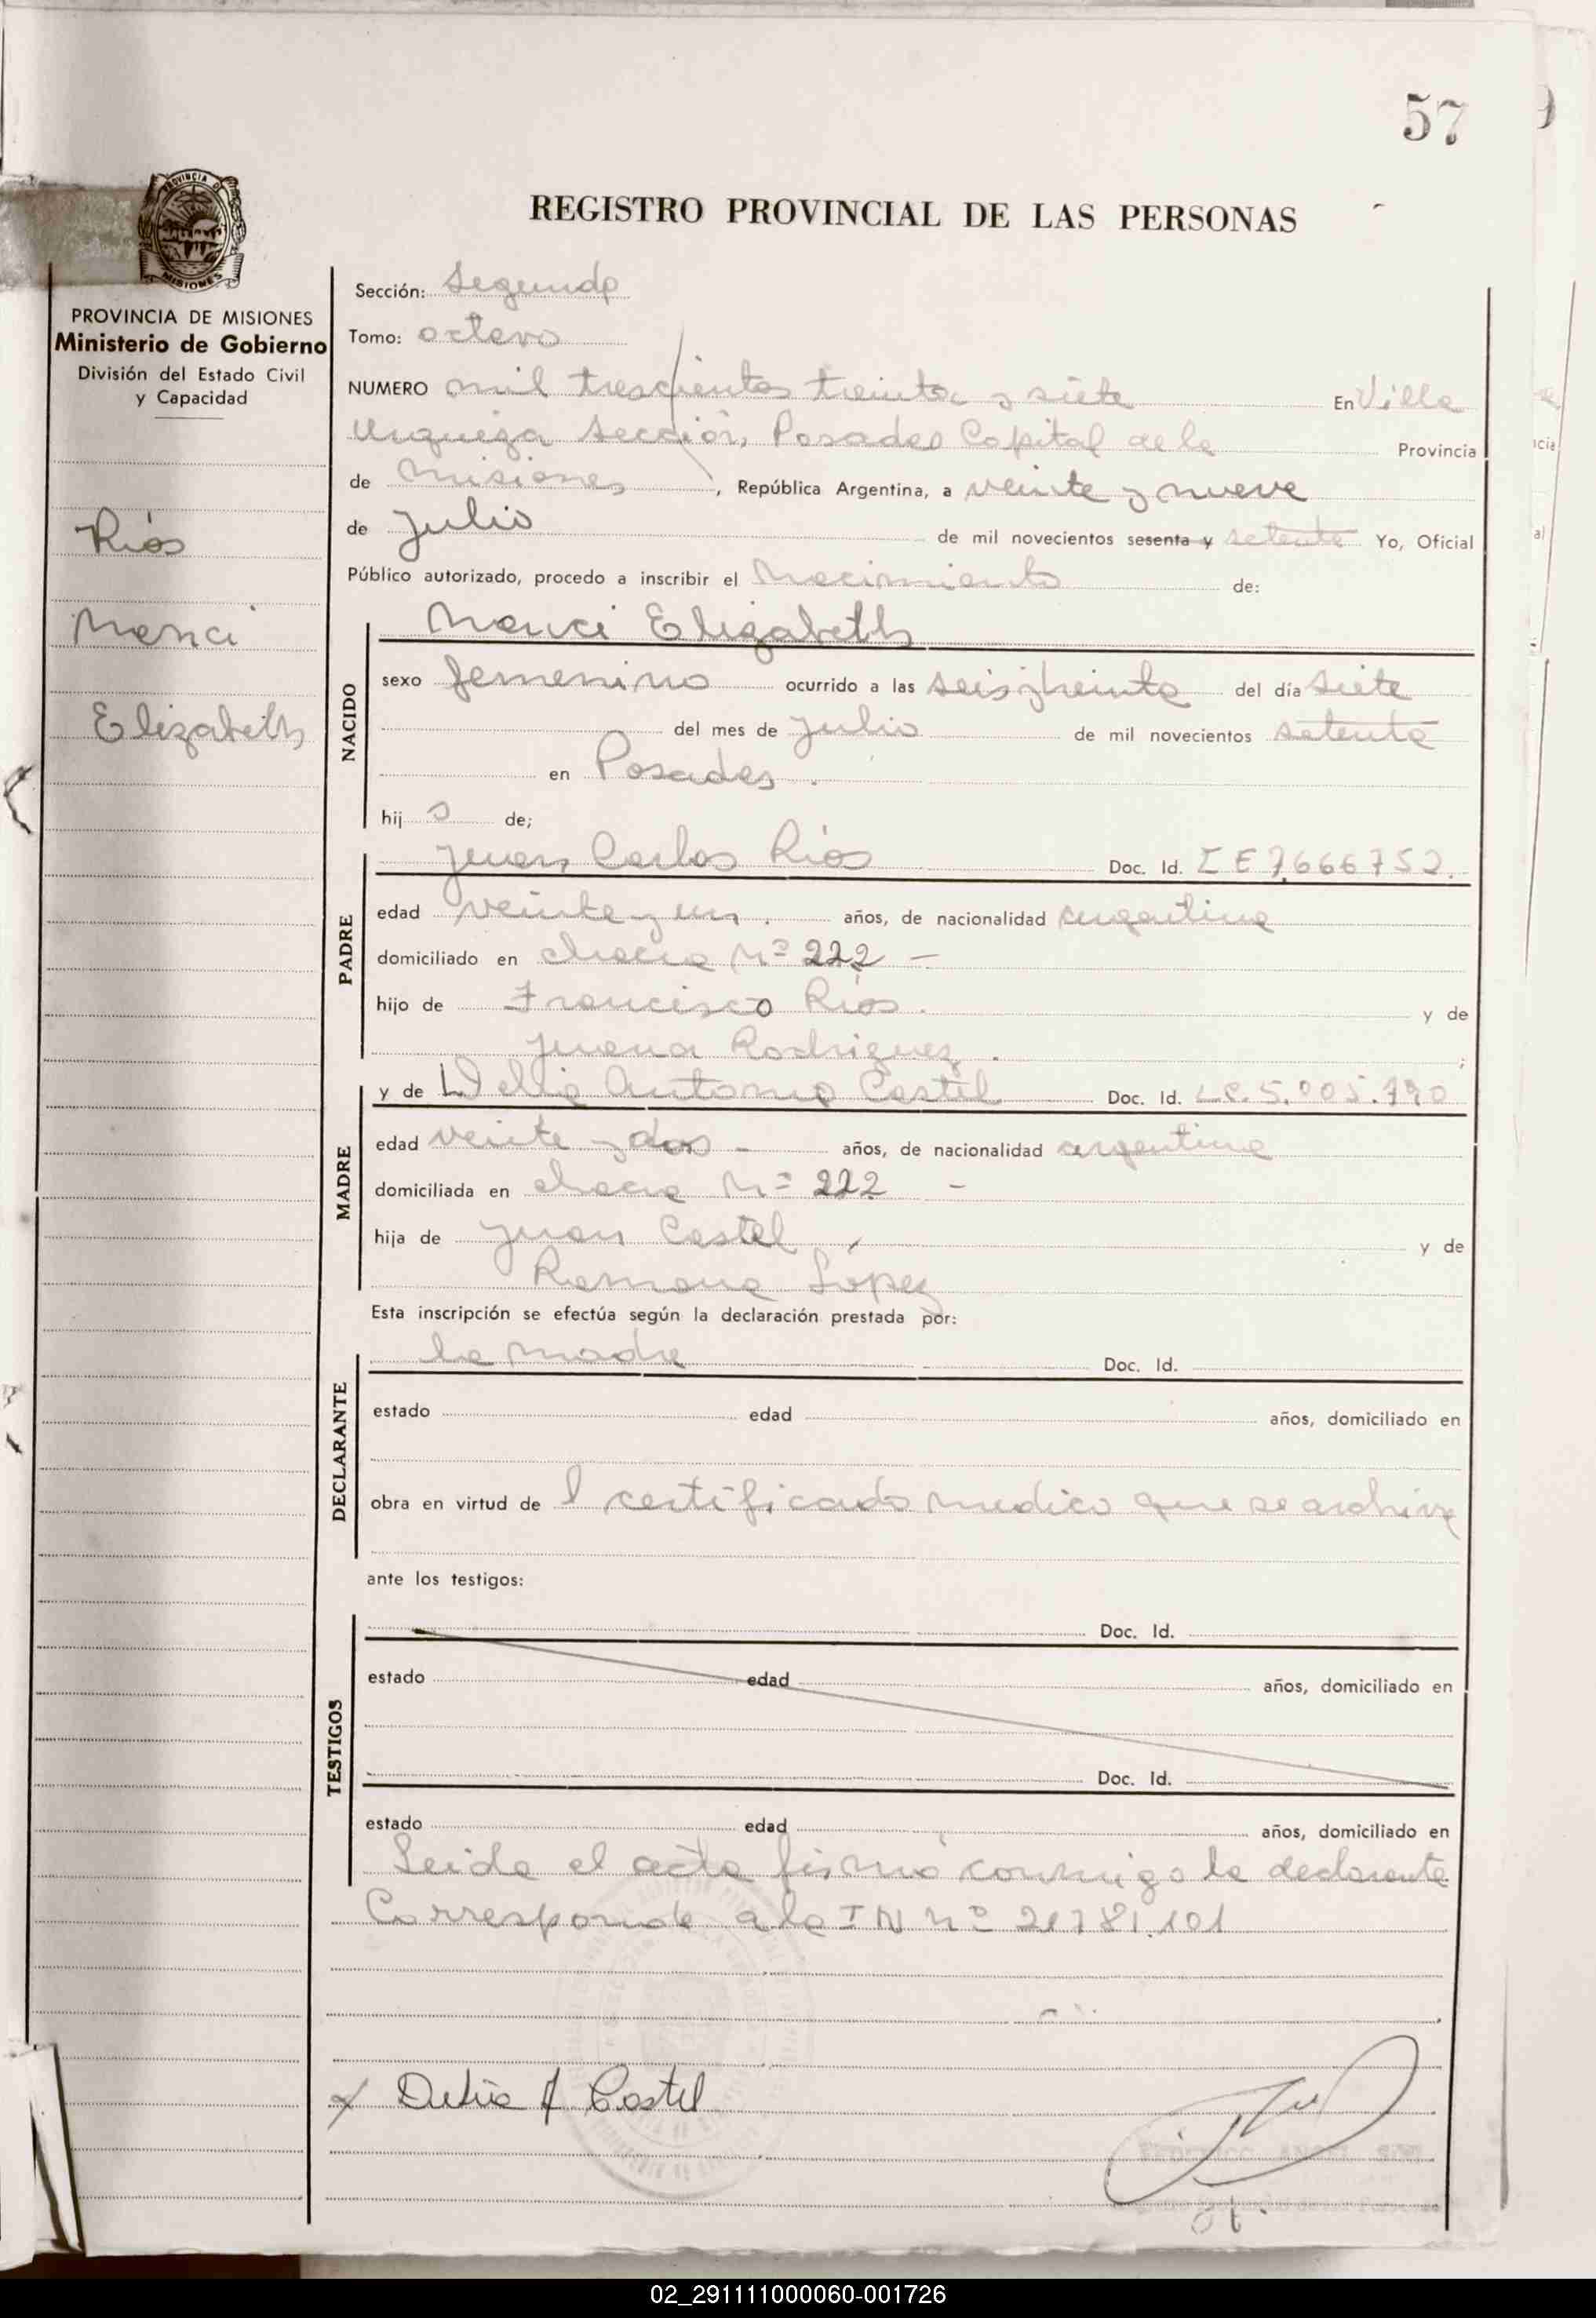 57
REGISTRO PROVINCIAL DE LAS PERSONAS
PROVINCIA DE MISIONES
Ministerio de Gobierno
División del Estado Civil
y Capacidad
Ríos
Nanci
Elizabeth
Sección: Segunda
Tomo: octavo
NUMERO mil trescientos treinta y siete En Villa
Urquiza Sección, Posadas Capital de la Provincia
de Misiones, República Argentina, a veinte y nueve
de Julio de mil novecientos sesenta y setenta Yo, Oficial
Público autorizado, procedo a inscribir el Nacimiento de:
NACIDO
Nanci Elizabeth
sexo femenino ocurrido a las seis y treinta del día siete
del mes de Julio de mil novecientos setenta
en Posadas.
hij a de;
PADRE
Juan Carlos Ríos Doc. Id. L E 7.666752.
edad veinte y un. años, de nacionalidad argentina
domiciliado en chacra Nº 222 -
hijo de Francisco Ríos. y de
Juana Rodriguez.;
MADRE
y de Delia Antonia Castel Doc. Id. L.C. 5.005.790
edad veinte y dos - años, de nacionalidad argentina
domiciliada en chacra Nº 222 -
hija de Juan Castel, y de
Ramona López
Esta inscripción se efectúa según la declaración prestada por:
DECLARANTE
la madre Doc. Id.
estado edad años, domiciliado en
obra en virtud de l certificado medico que se archiva
ante los testigos:
TESTIGOS
Doc. Id.
estado edad años, domiciliado en
Doc. Id.
estado edad años, domiciliado en
Leida el acta firmó conmigo la declarante
Corresponde a la I N nº 21781.101
x Delia A Castel
02_291111000060-001726